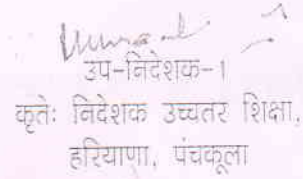 उप-निदेशक-।
कृतेः निदेशक उच्चतर शिक्षा,
हरियाणा, पंचकूला